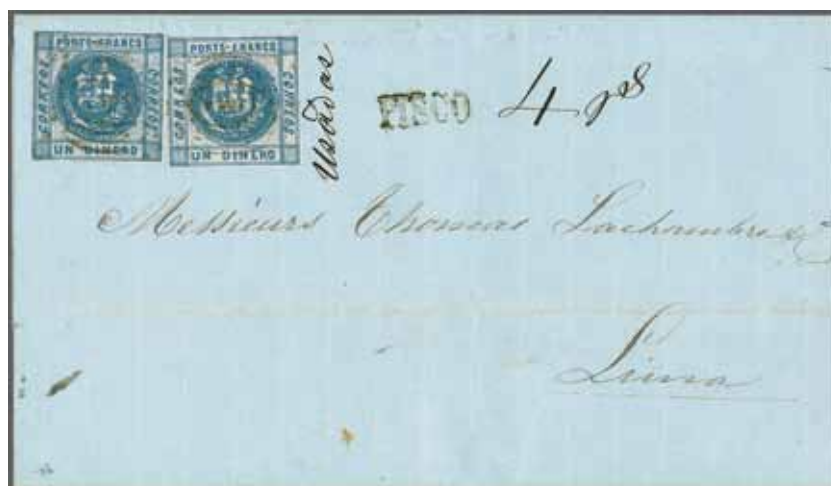 PORTE FRANCO
CORREOS
CORREOS
UN DINERO
PORTE FRANCO
CORREOS
CORREOS
UN DINERO
Usadas
PISCO
4 rs
Messieurs Thomas Lachambre &
Lima